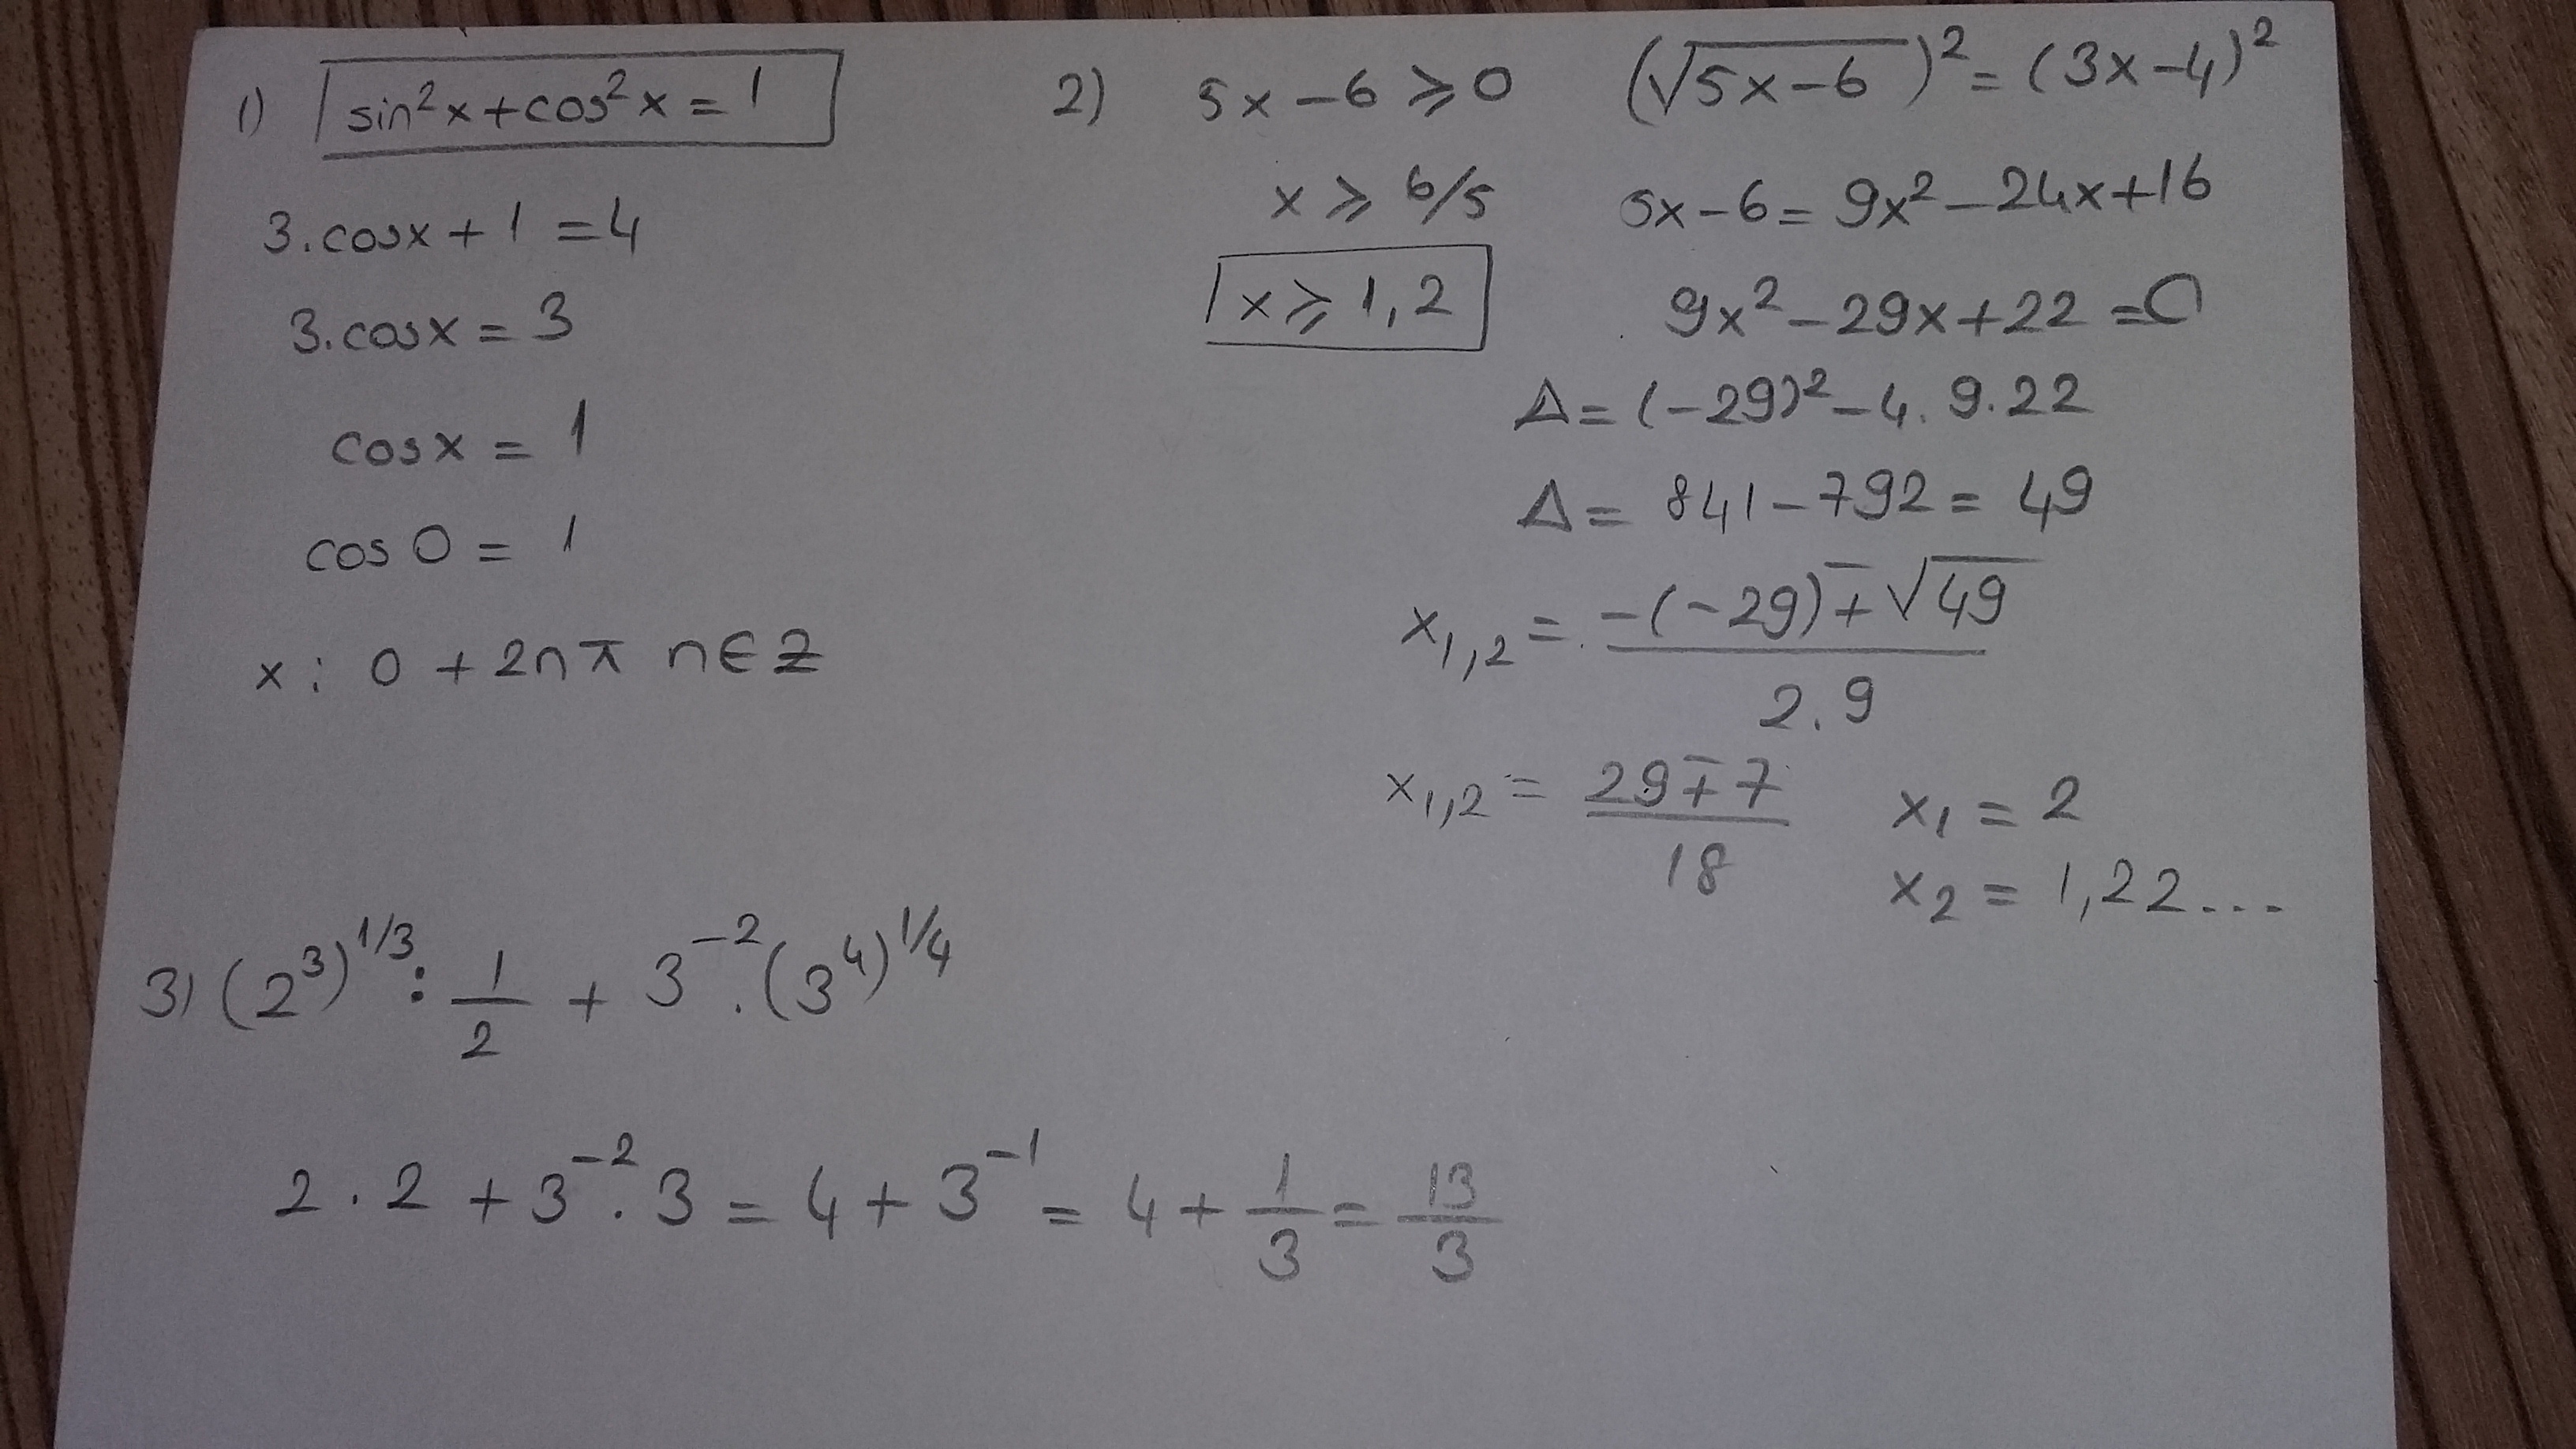 1) sin²x + cos²x = 1
3.cosx + 1 = 4
3.cosx = 3
cosx = 1
cos 0 = 1
x : 0 + 2nπ n∈Z
2) 5x - 6 ⩾ 0
x ⩾ 6/5
x ⩾ 1,2
(√5x-6)² = (3x-4)²
5x-6 = 9x² - 24x + 16
9x² - 29x + 22 = 0
Δ = (-29)² - 4. 9. 22
Δ = 841 - 792 = 49
x₁,₂ = -(-29) ∓ √49 / 2.9
x₁,₂ = 29 ∓ 7 / 18
x₁ = 2
x₂ = 1,22...
3) (2³)^1/3 : 1/2 + 3⁻² . (3⁴)^1/4
2 . 2 + 3⁻² . 3 = 4 + 3⁻¹ = 4 + 1/3 = 13/3